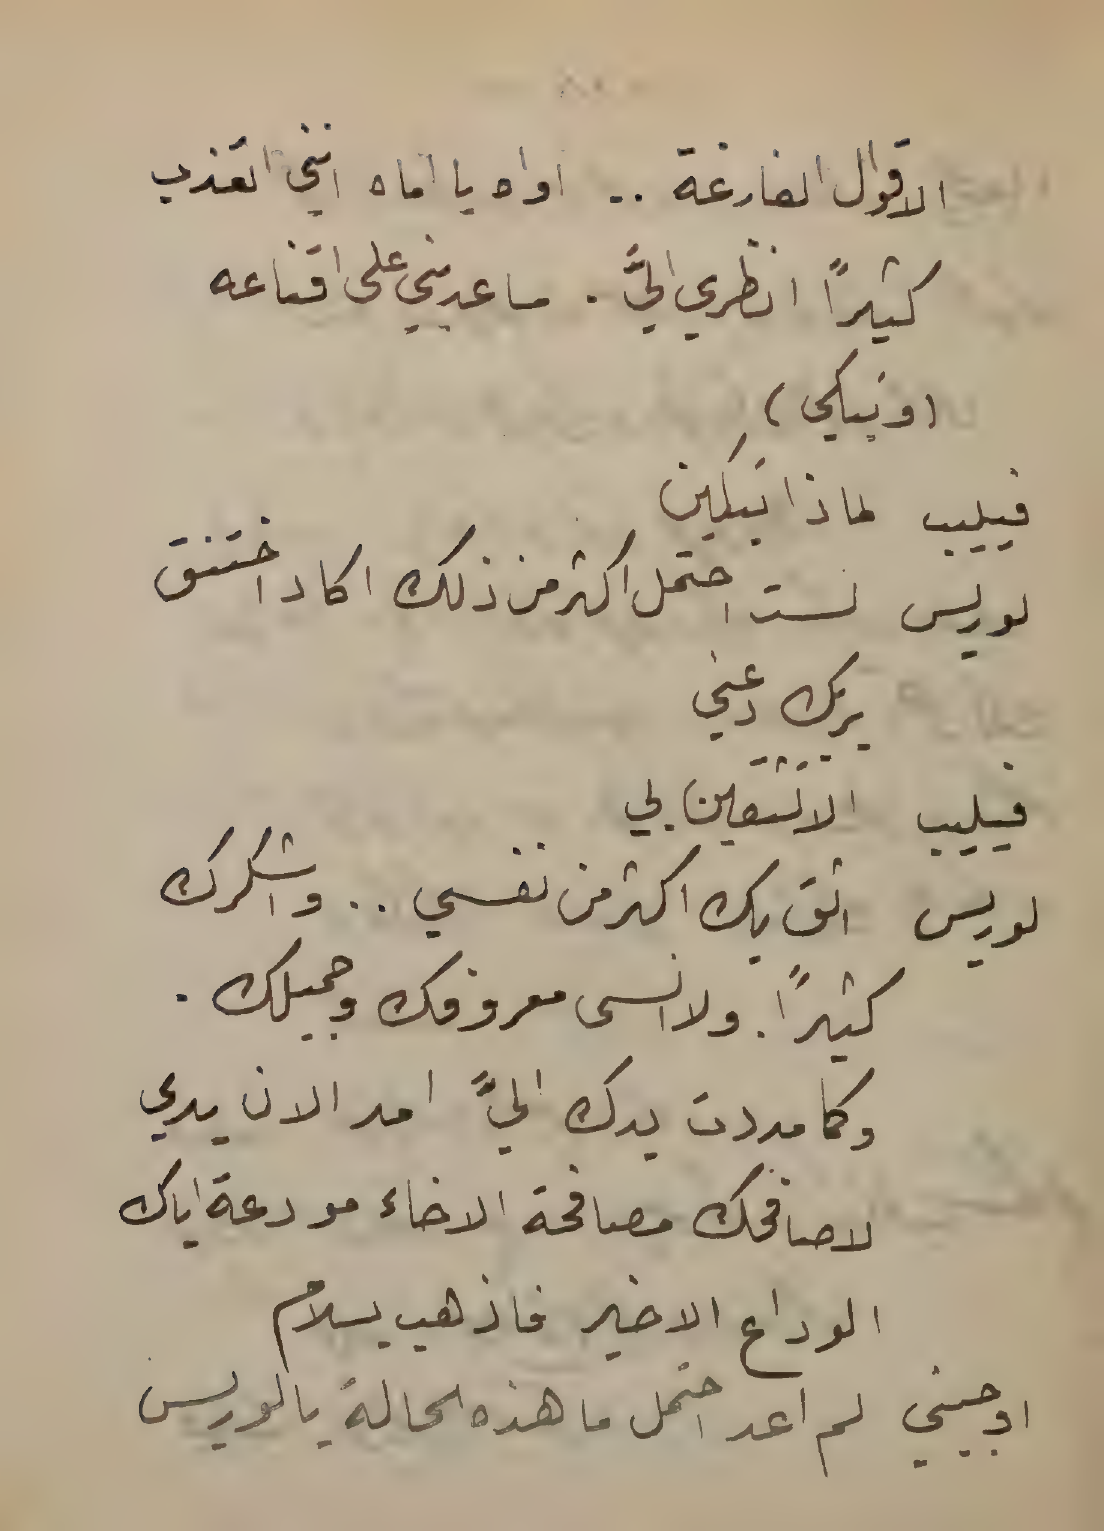 الاقوال الفارغة .. اواه يا اماه انني اتعذب
كثيراً انظري اليَّ . ساعديني على اقناعه
(وتبكي)
فيليب لماذا تبكين
لوريس لست احتمل اكثر من ذلك اكاد اختنق
بربك دعني
فيليب الا تثقين بي
لوريس اثق بك اكثر من نفسي .. واشكرك
كثيراً . ولا انسى معروفك وجميلك .
وكما مددت يدك اليَّ امد الان يدي
لاصافحك مصافحة الاخاء مودعة اياك
الوداع الاخير فاذهب بسلام
اوجيني لم اعد احتمل ما هذه الحالة يا لوريس